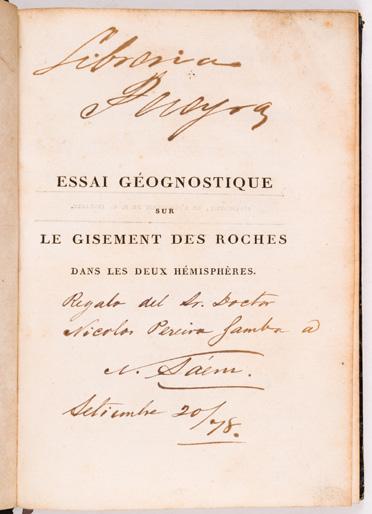 Libreria
Pueyra
ESSAI GÉOGNOSTIQUE
SUR
LE GISEMENT DES ROCHES
DANS LES DEUX HÉMISPHÈRES.
Regalo del Sr. Doctor
Nicolas Pereira Gamba a
N. Sáenz.
Setiembre 20/78.